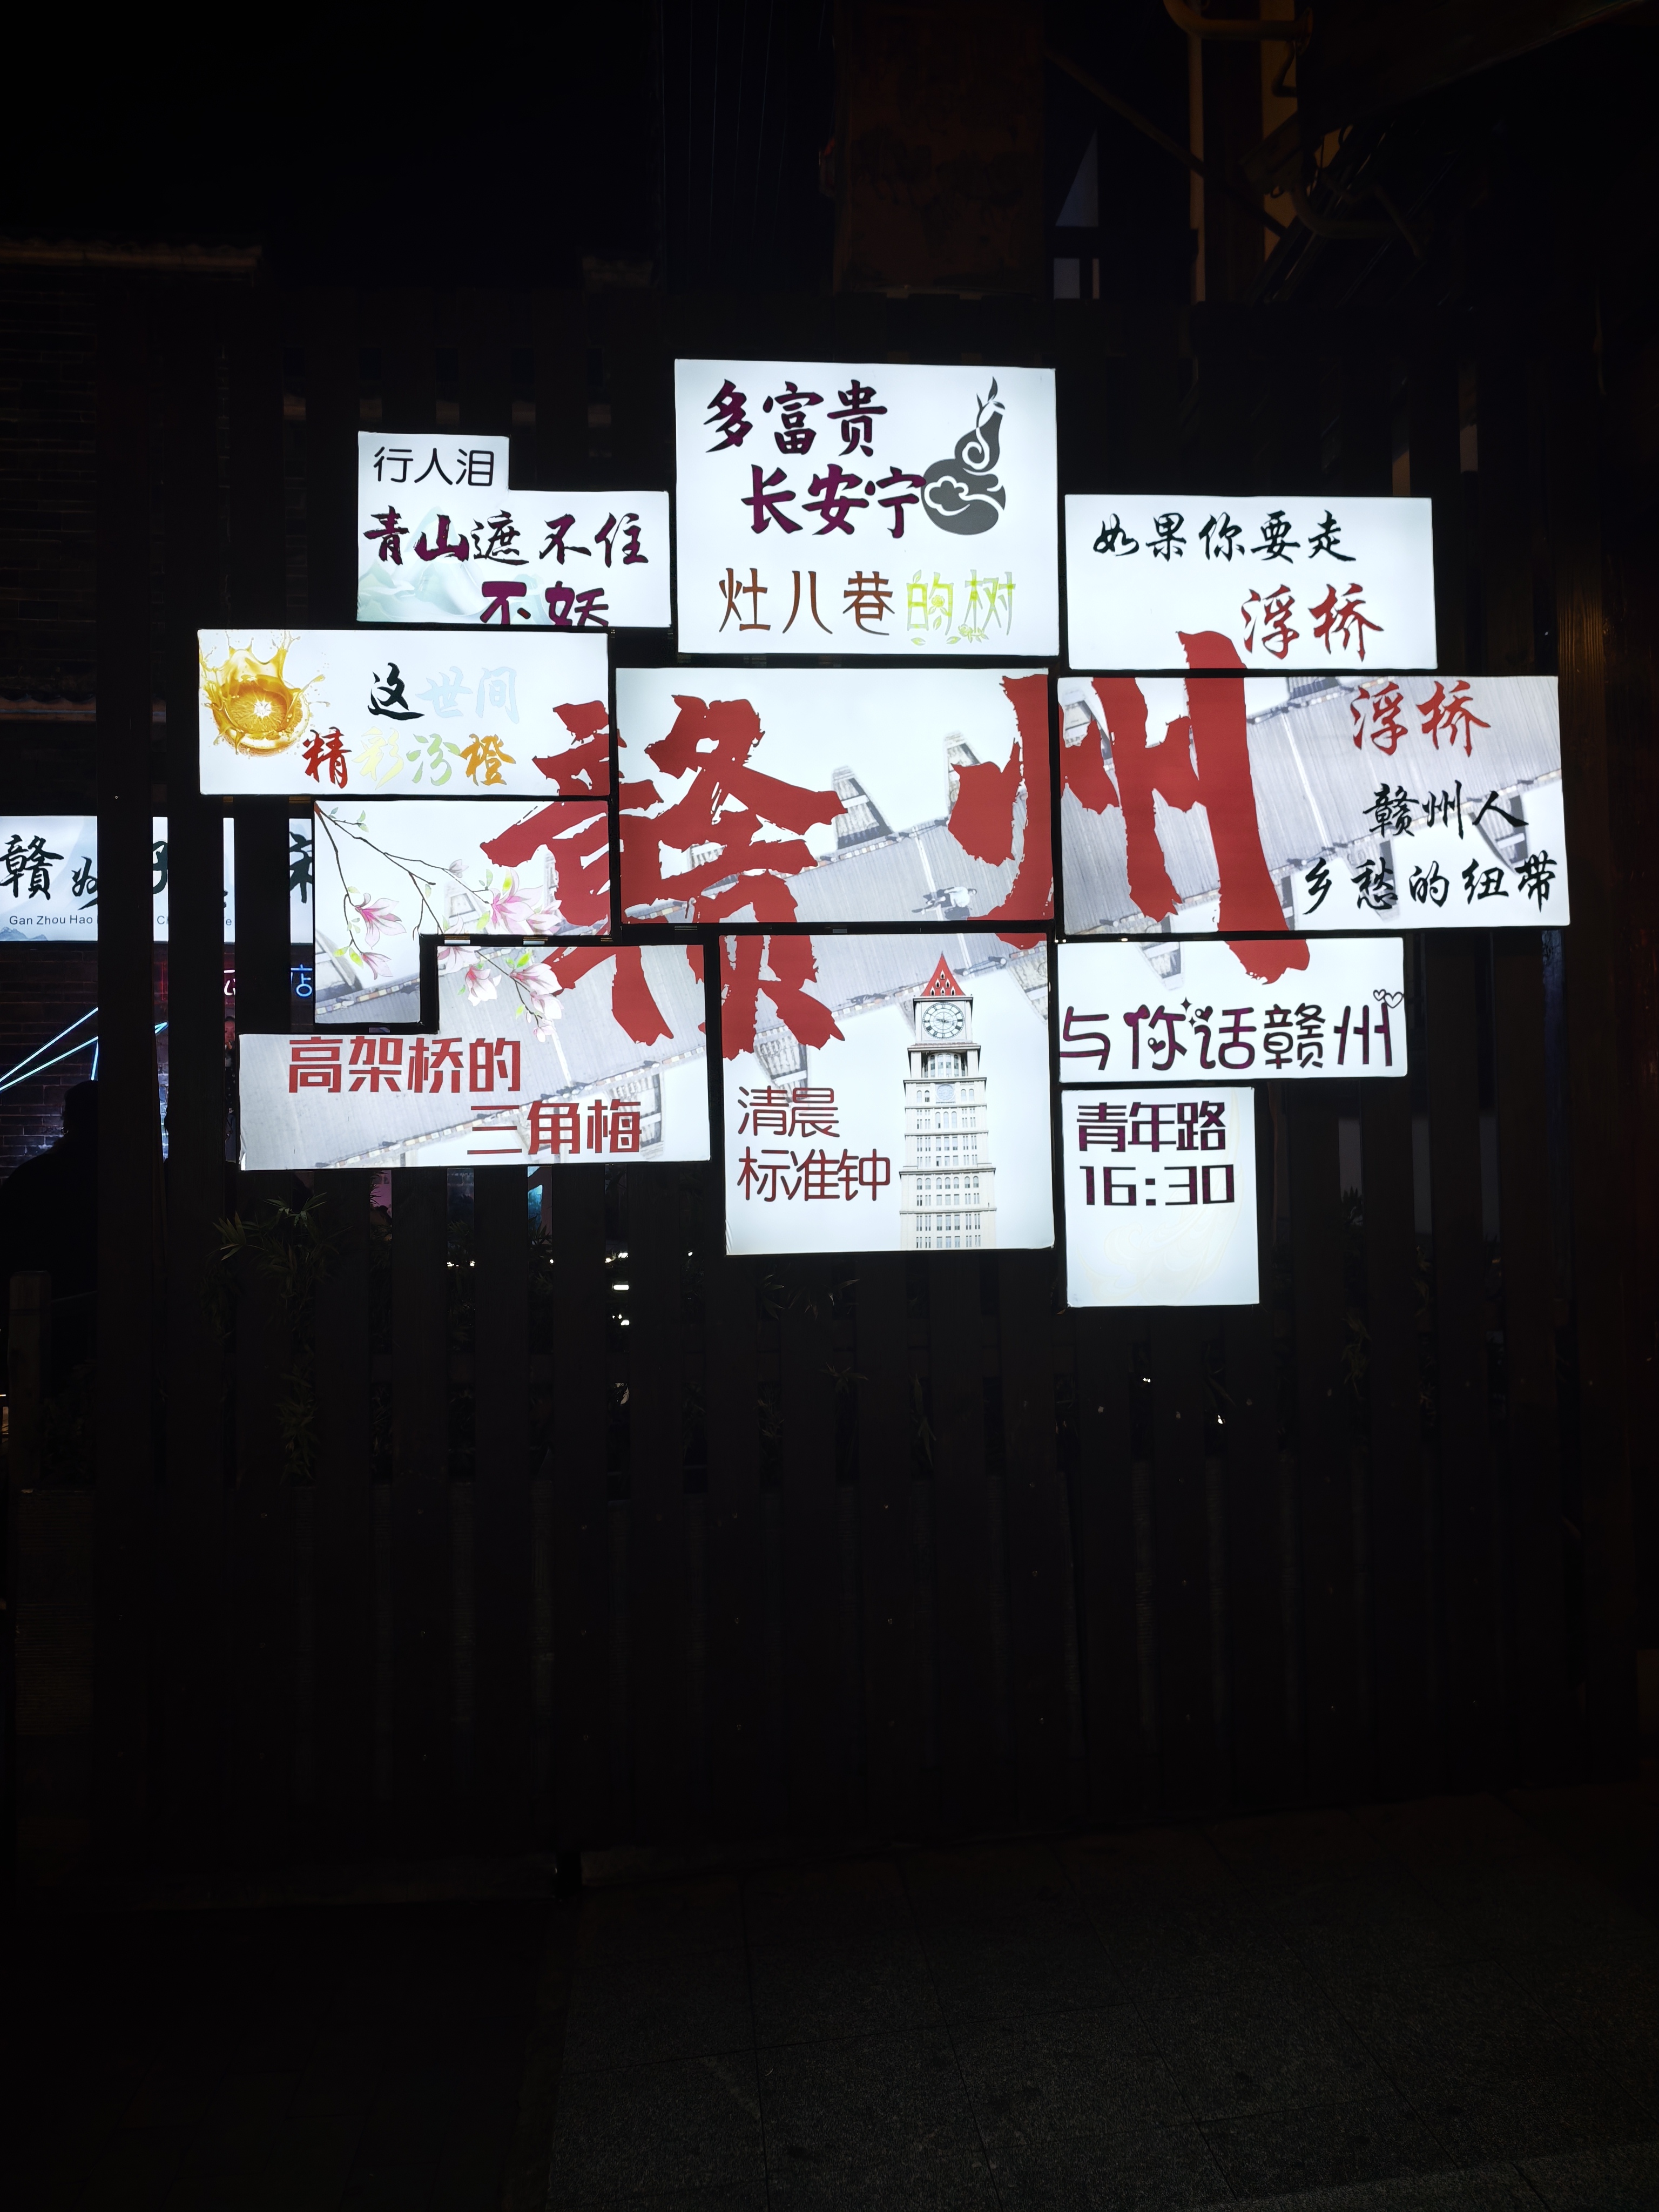 多富贵
长安宁
灶儿巷的树
行人泪
青山遮不住
不妖
如果你要走
浮桥
这世间
精彩汾橙
赣州
浮桥
赣州人
乡愁的纽带
赣
Gan Zhou Hao
店
高架桥的
三角梅
清晨
标准钟
与你话赣州
青年路
16:30